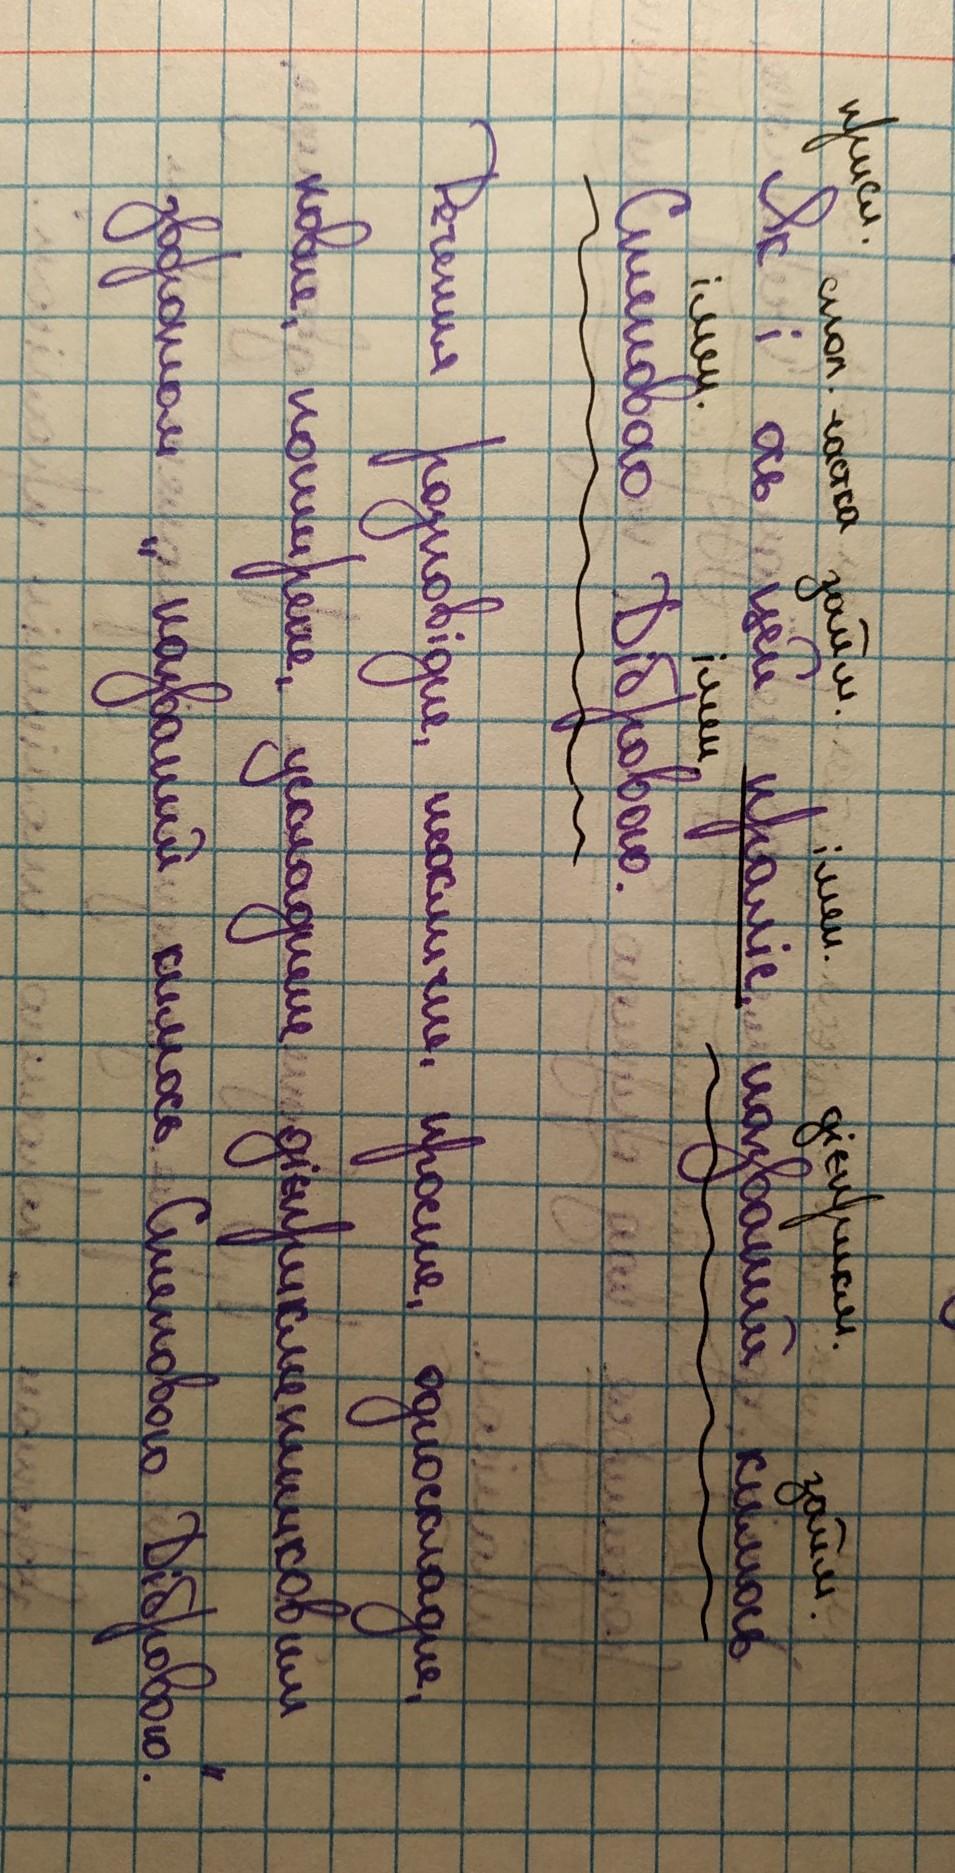 присл. спол. частка займ. імен. дієприкм. займ.
Як і ось цей праліс, названий кимось
імен. імен
Степовою Дібровою.
Речення розповідне, неокличне, просте, односкладне,
повне, поширене, ускладнене дієприкметниковим
зворотом „названий кимось Степового Дібровою."